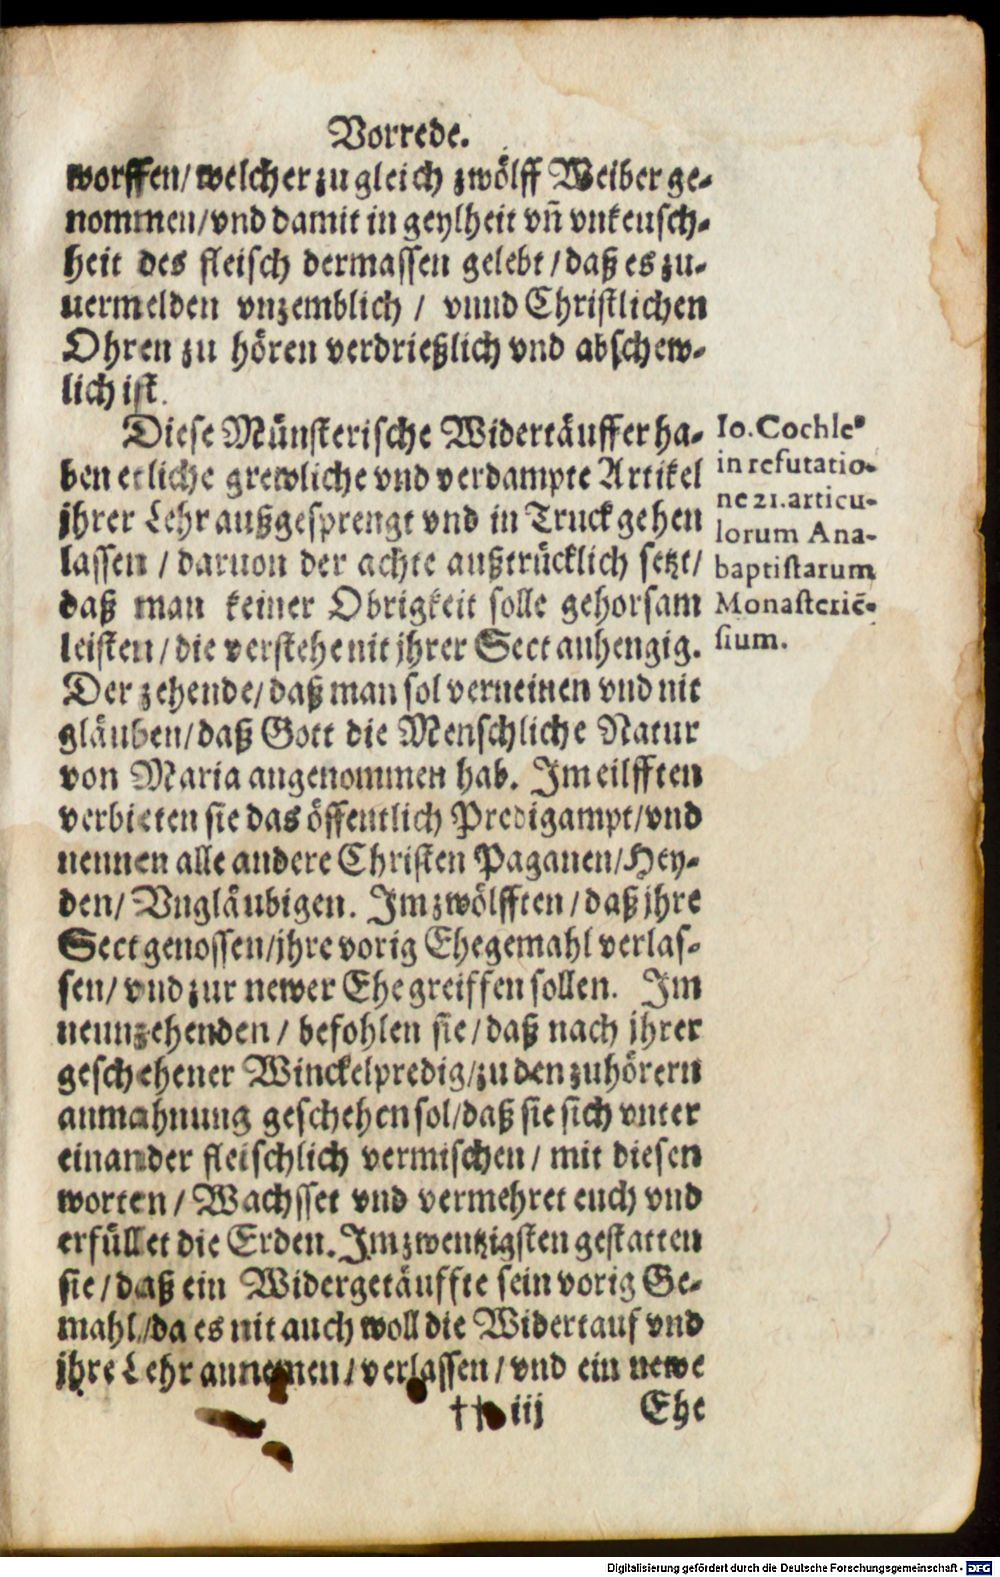 Vorrede.
worffen/welcher zu gleich zwölff Weiber ge-
nommen/vnd damit in geylheit vñ vnkeusch-
heit des fleisch dermassen gelebt/daß es zu-
uermelden vnzemblich / vnnd Christlichen
Ohren zu hören verdrießlich vnd abschew-
lich ist.
Diese Münsterische Widertäuffer ha-
ben etliche grewliche vnd verdampte Artikel
jhrer Lehr außgesprengt vnd in Truck gehen
lassen / daruon der achte außtrücklich setzt/
daß man keiner Obrigkeit solle gehorsam
leisten/die verstehe nit jhrer Sect anhengig.
Der zehende/daß man sol verneinen vnd nit
gläuben/daß Gott die Menschliche Natur
von Maria angenommen hab. Im eilfften
verbieten sie das öffentlich Predigampt/vnd
nennen alle andere Christen Paganen/Hey-
den/ Vngläubigen. Im zwölfften/daß jhre
Sectgenossen/jhre vorig Ehegemahl verlas-
sen/ vnd zur newer Ehe greiffen sollen. Im
neunzehenden/ befohlen sie/daß nach jhrer
geschehener Winckelpredig/zu den zuhörern
anmahnung geschehen sol/daß sie sich vnter
einander fleischlich vermischen/ mit diesen
worten/ Wachsset vnd vermehret euch vnd
erfüllet die Erden. Im zwentzigsten gestatten
sie/daß ein Widergetäuffte sein vorig Ge-
mahl/da es nit auch woll die Widertauf vnd
jhre Lehr annemen/verlassen/vnd ein newe
†† iij Ehe
Io. Cochle⁹
in refutatio-
ne 21. articu-
lorum Ana-
baptistarum
Monasteriẽ-
sium.
Digitalisierung gefördert durch die Deutsche Forschungsgemeinschaft - DFG